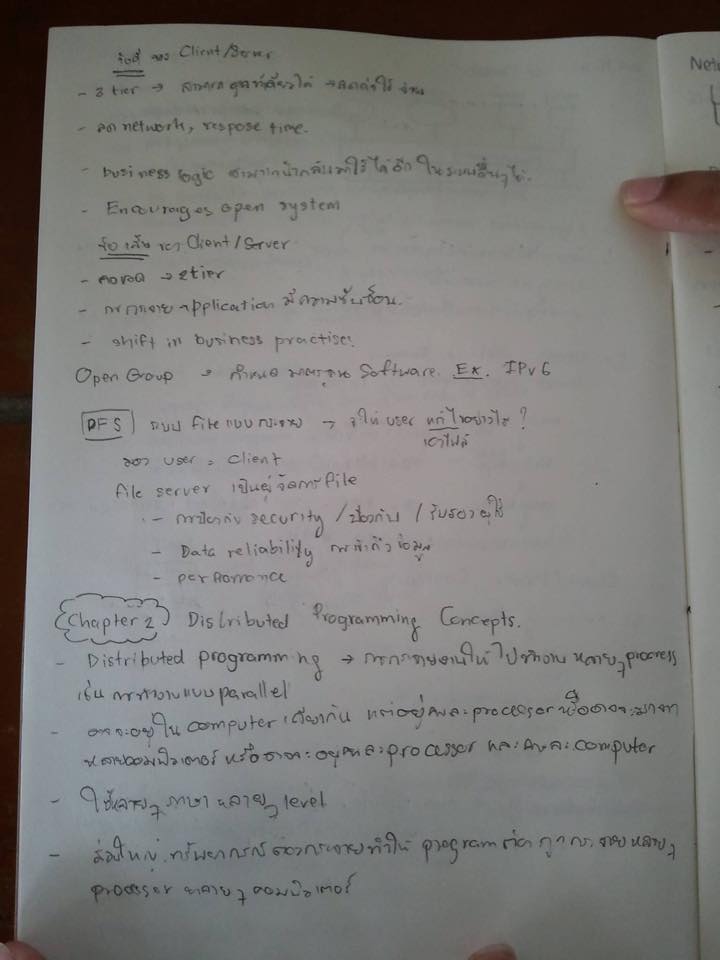 ข้อดี ของ Client/Server
- 3 tier → สามารถดูแลที่เดียวได้ → ลดค่าใช้จ่าย
- ลด network, respose time.
- business logic สามารถนำกลับมาใช้ได้อีก ในระบบอื่นๆได้.
- Encourages open system
ข้อเสีย ของ Client/Server
- → 2tier
- การกระจาย application มีความซับซ้อน.
- shift in business practise.
Open Group → กำหนด มาตรฐาน Software. Ex. IPv6
DFS ระบบ file แบบกระจาย → จะให้ user ?
เอาไฟล์
มอง user = client
file server เป็นผู้จัดการ file
- การป้องกัน security / ป้องกัน / รับรองผู้ใช้
- Data reliability ข้อมูล
- performance
Chapter 2 Distributed Programming Concepts.
- Distributed programming → การกระจายงานให้ไปทำงาน หลายๆ process
เช่น การทำงานแบบ parallel
- อาจจะอยู่ใน computer เดียวกัน แต่อยู่คนละ processor หรืออาจจะมาจาก
หลายคอมพิวเตอร์ หรืออาจจะอยู่คนละ processor และคนละ computer
- ใช้หลายๆ ภาษา หลายๆ level
- ส่วนใหญ่ ทรัพยากรต้องกระจายทำให้ program ต้อง ถูกกระจายหลายๆ
processor หลายๆ คอมพิวเตอร์